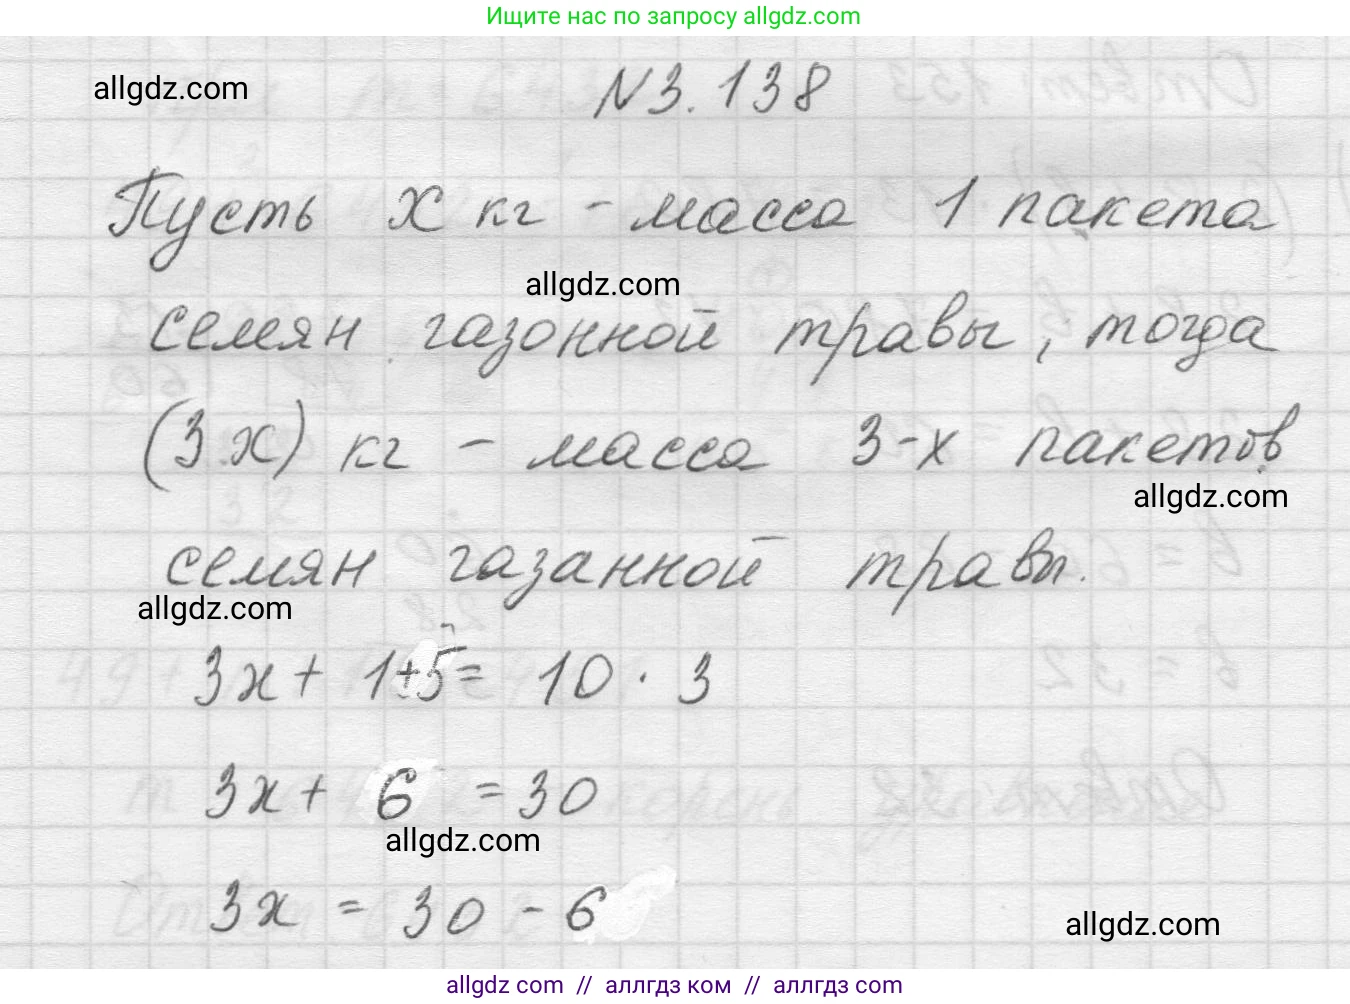 Ищите нас по запросу allgdz.com
allgdz.com
N3.138
Пусть x кг - масса 1 пакета
allgdz.com
семян газонной травы, тогда
(3x) кг - масса 3-х пакетов
allgdz.com
семян газанной травы.
allgdz.com
3x + 1+5 = 10 · 3
3x + 6 = 30
allgdz.com
3x = 30 - 6
allgdz.com
allgdz com // аллгдз ком // аллгдз com